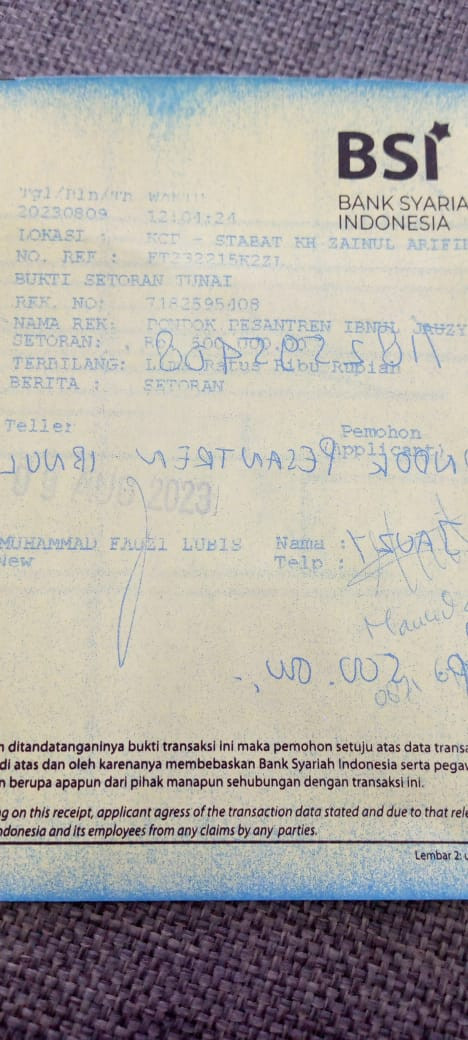 BSI
BANK SYARIA
INDONESIA
Tgl/Bln/Th Waktu
20230809 12:01:24
LOKASI : KCP - STABAT KH ZAINUL ARIFI
NO. REF : FT232215K2ZL
BUKTI SETORAN TUNAI
REK. NO: 7182595408
NAMA REK: PONDOK PESANTREN IBNUL JAUZY
SETORAN: Rp. 500,000.00
TERBILANG: Lima Ratus Ribu Rupiah
BERITA : SETORAN
7182595408
Teller
Pemohon
(Applicant)
NDOK PESANTREN IBNUL
09 AUG 2023
JAUZY
MUHAMMAD FAUZI LUBIS
New
Nama :
Telp :
Rp 500.000,-
n ditandatanganinya bukti transaksi ini maka pemohon setuju atas data transa
di atas dan oleh karenanya membebaskan Bank Syariah Indonesia serta pegaw
n berupa apapun dari pihak manapun sehubungan dengan transaksi ini.
ng on this receipt, applicant agress of the transaction data stated and due to that rele
ndonesia and its employees from any claims by any parties.
Lembar 2: u